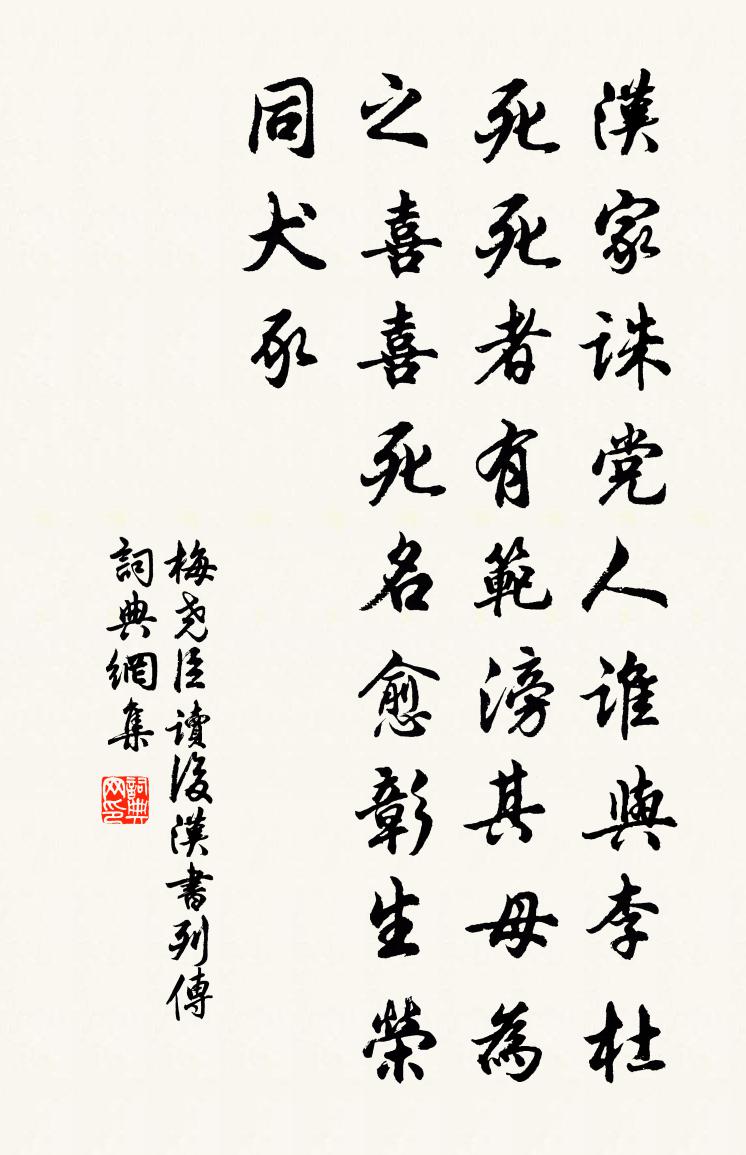 漢家誅党人誰與李杜
死死者有範滂其母為
之喜喜死名愈彰生榮
同犬豕
梅尧臣讀後漢書列傳
詞典網集
詞典网印